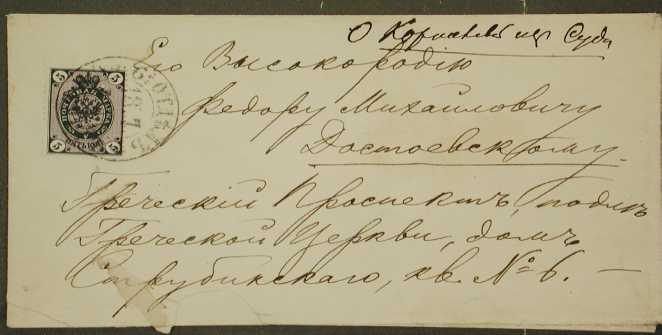 О Корниловой из Суда
Его Высокородію
Федору Михайловичу
Достоевскому.
Греческій Проспектъ, подлѣ
Греческой Церкви, домъ
Струбинскаго, кв. № 6. —
5 5
5 5